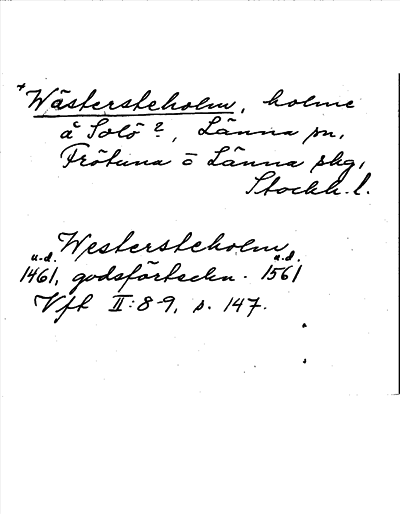 +Wästersteholm, holme
å Solö?, Länna sn,
Frötuna o Länna skg,
Stockh. l.
Westersteholm
u.d. u.d.
1461, godsförteckn. 1561
Vft II:8-9, s. 147.